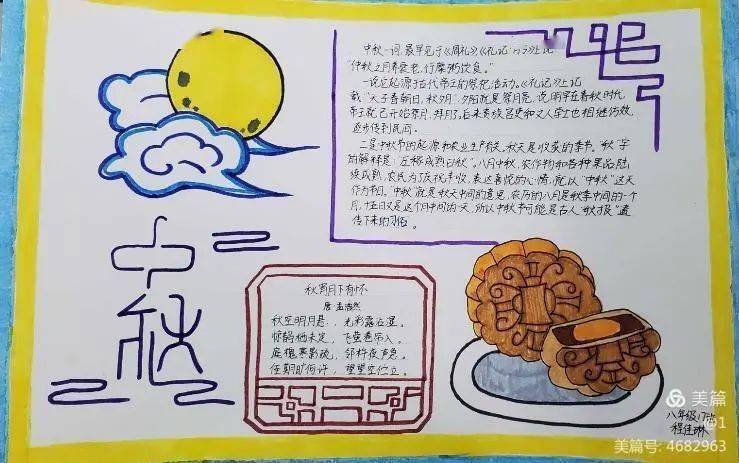 中秋一词,最早见于《周礼》,《礼记·月令》上记
"仲秋之月养衰老,行糜粥饮食。"
一说它起源于古代帝王的祭祀活动。《礼记》上记
载:"天子春朝日,秋夕月",夕月就是祭月亮,说明早在春秋时代,
帝王就已开始祭月、拜月了,后来贵族官吏和文人学士也相继仿效,
逐步传到民间。
二是中秋节的起源和农业生产有关,秋天是收获的季节。"秋"字
的解释是:"庄稼成熟曰秋"。八月中秋,农作物和各种果品陆
续成熟,农民为了庆祝丰收,表达喜悦的心情,就以"中秋"这天
作为节日。"中秋"就是秋天中间的意思,农历的八月是秋季中间的一个
月,十五日又是这个月中间的一天,所以中秋节可能是古人"秋报"遗
传下来的习俗。
中秋
秋宵月下有怀
唐 孟浩然
秋空明月悬,光彩露沾湿。
惊鹊栖未定,飞萤卷帘入。
庭槐寒影疏,邻杵夜声急。
佳期旷何许,望望空伫立。
八年级
程佳琳
美篇
美篇号: 4682963